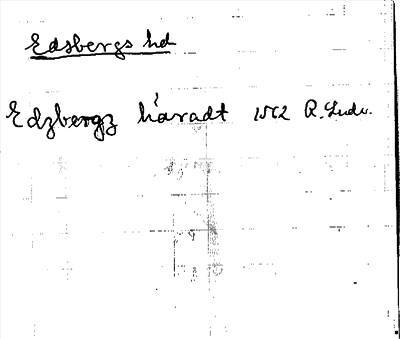 Edsbergs hd
Edzbergz häradt 1562 R. Ludv.